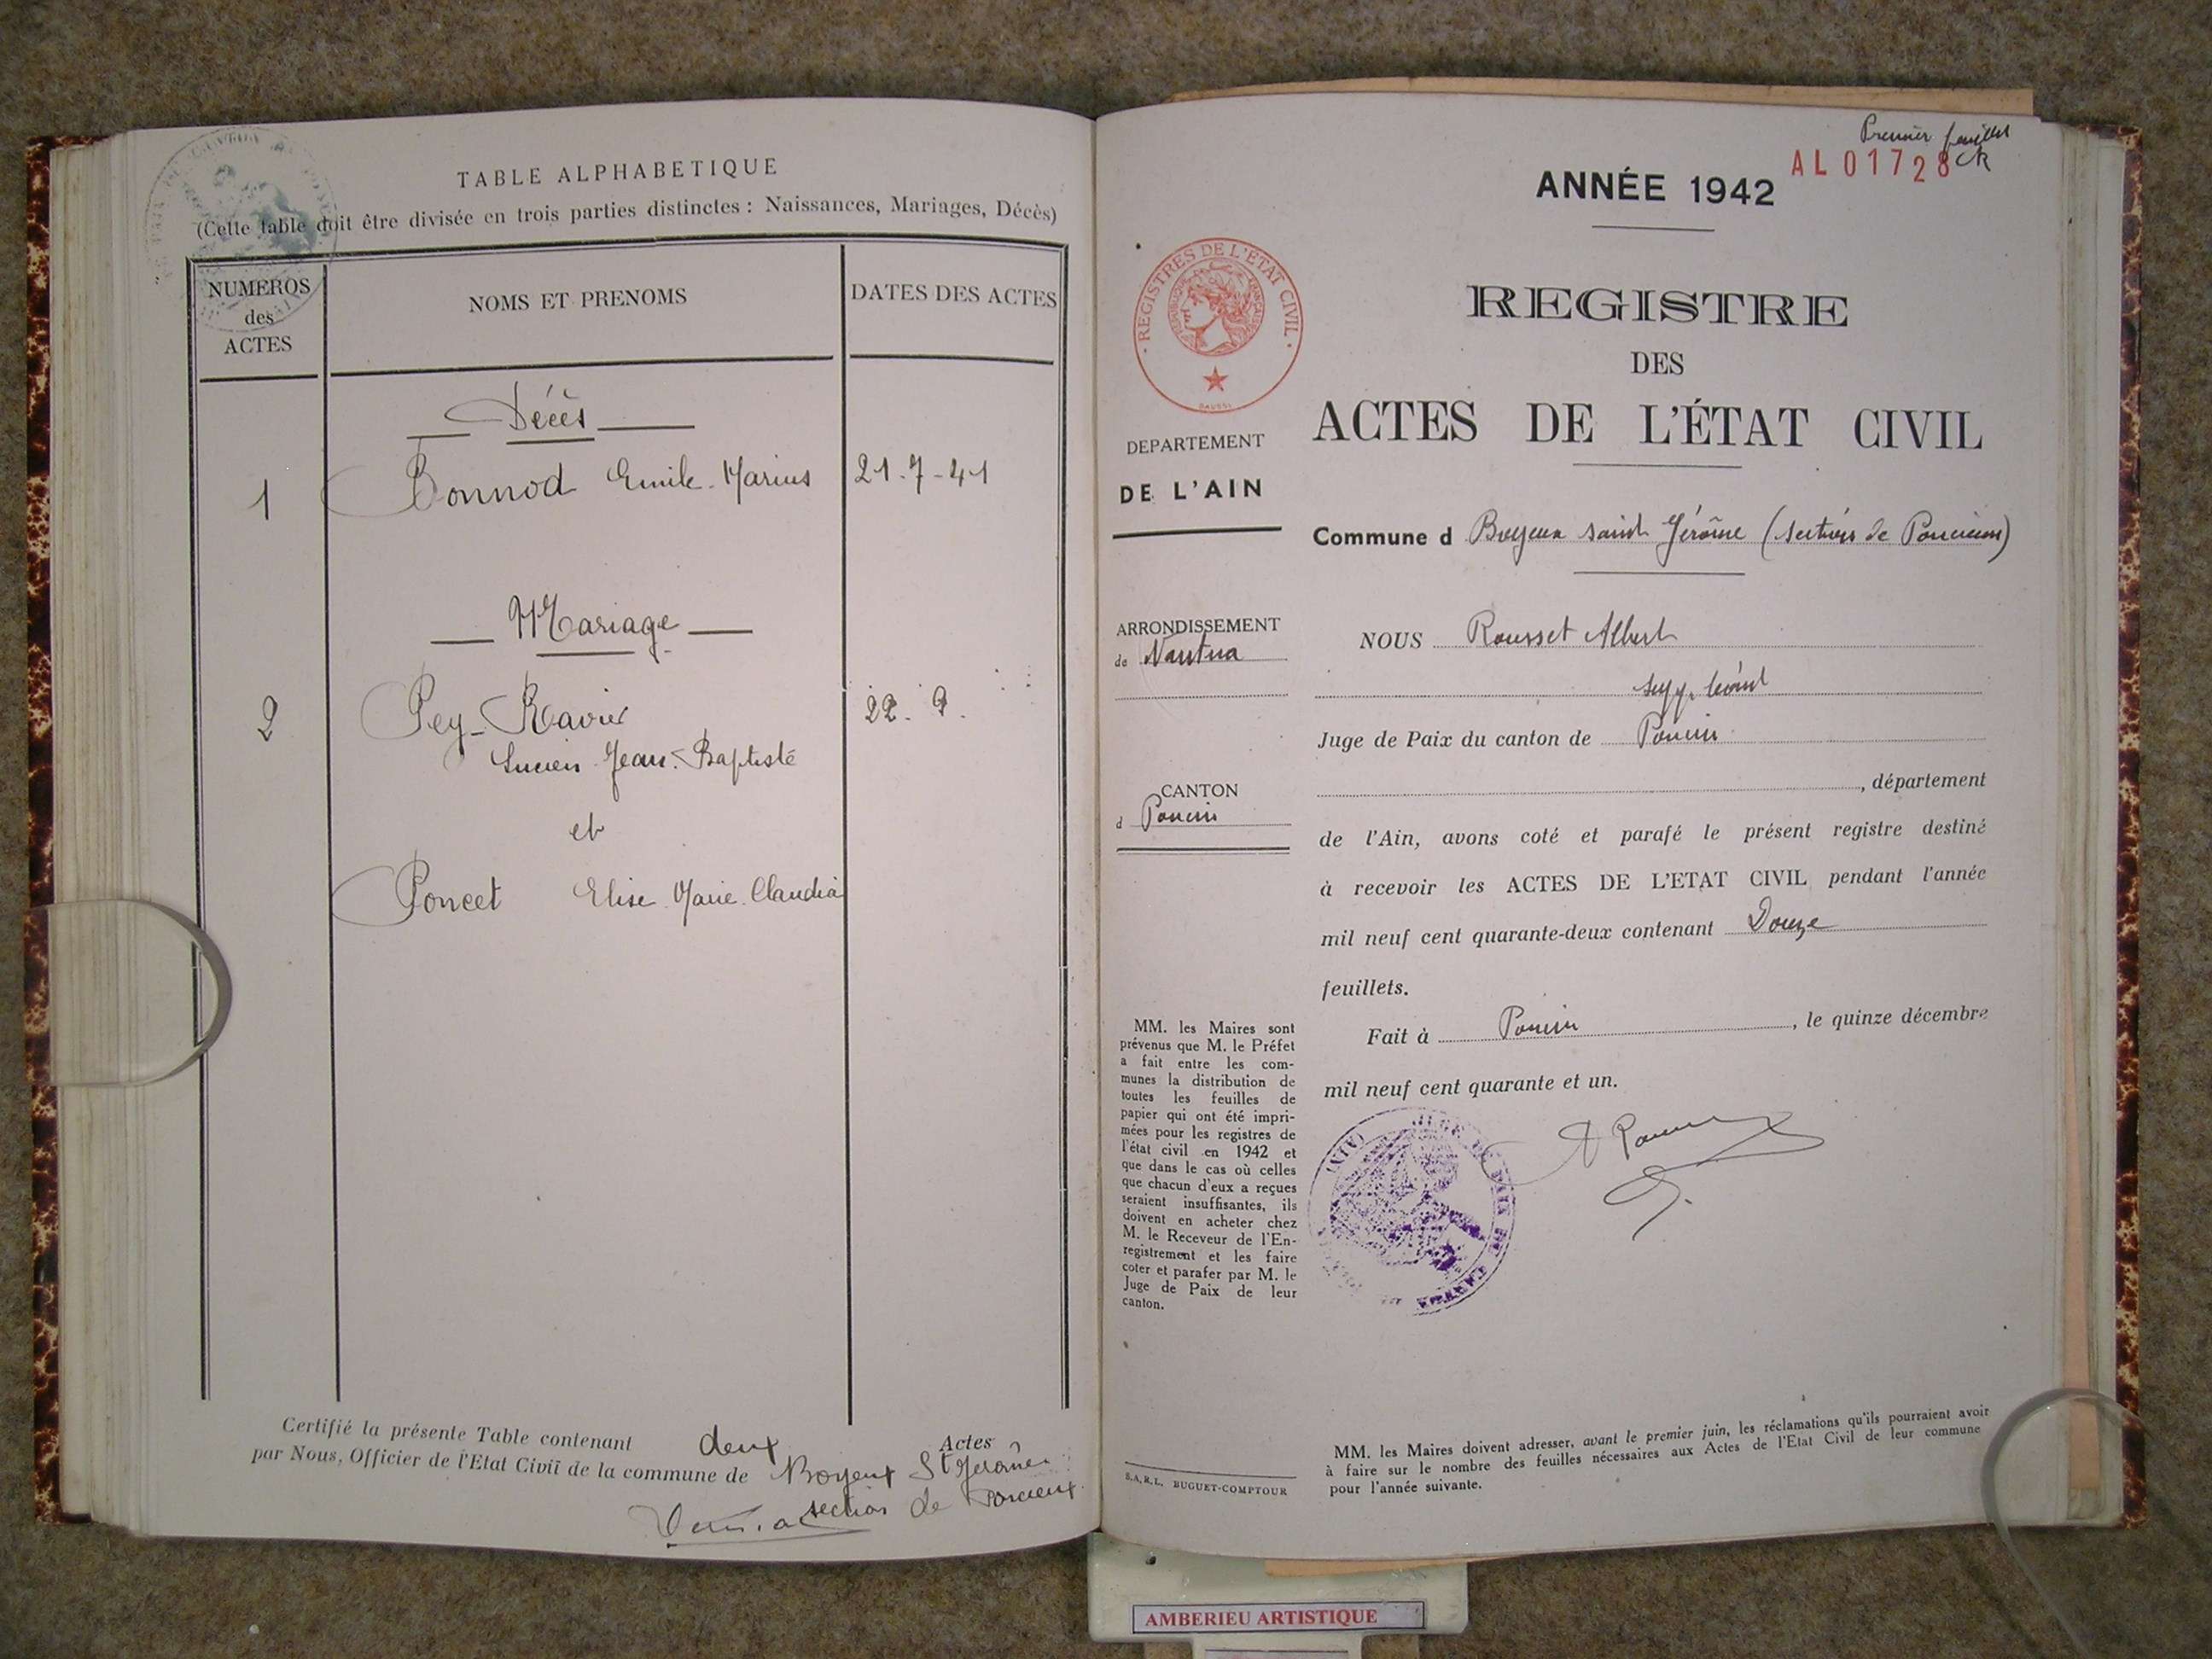 TABLE ALPHABETIQUE
(Cette table doit être divisée en trois parties distinctes : Naissances, Mariages, Décès)
NUMEROS
des
ACTES
NOMS ET PRENOMS
DATES DES ACTES
Décès
1 Bonnod Emile Marius 21-7-41
Mariage
2 Pey-Ravier 22. 9.
Lucien Jean-Baptiste
et
Poncet Elise Marie Claudia
Certifié la présente Table contenant deux Actes
par Nous, Officier de l'Etat Civil de la commune de Boyeux St Jerôme
section de Poncieux
Premier feuillet
AL 01728
ANNÉE 1942
REGISTRES DE L'ETAT CIVIL
REPUBLIQUE FRANÇAISE
REGISTRE
DES
ACTES DE L'ÉTAT CIVIL
DEPARTEMENT
DE L'AIN
Commune d Boyeux saint Jérôme (section de Poncieux)
ARRONDISSEMENT
de Nantua
NOUS Rousset Albert
suppléant
Juge de Paix du canton de Poncin
, département
CANTON
d Poncin
de l'Ain, avons coté et parafé le présent registre destiné
à recevoir les ACTES DE L'ETAT CIVIL pendant l'année
mil neuf cent quarante-deux contenant Douze
feuillets.
Fait à Poncin, le quinze décembre
mil neuf cent quarante et un.
MM. les Maires sont
prévenus que M. le Préfet
a fait entre les com-
munes la distribution de
toutes les feuilles de
papier qui ont été impri-
mées pour les registres de
l'état civil en 1942 et
que dans le cas où celles
que chacun d'eux a reçues
seraient insuffisantes, ils
doivent en acheter chez
M. le Receveur de l'En-
registrement et les faire
coter et parafer par M. le
Juge de Paix de leur
canton.
S.A.R.L. BUGUET-COMPTOUR
MM. les Maires doivent adresser, avant le premier juin, les réclamations qu'ils pourraient avoir
à faire sur le nombre des feuilles nécessaires aux Actes de l'Etat Civil de leur commune
pour l'année suivante.
AMBERIEU ARTISTIQUE